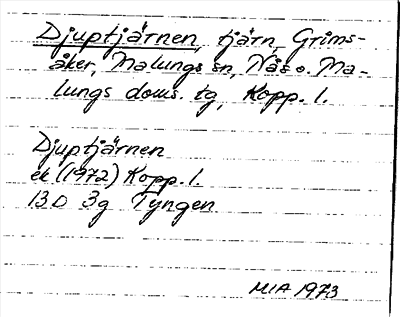 Djuptjärnen, tjärn, Grims-
åker, Malungs sn, Nås o. Ma-
lungs doms. tg, Kopp. l.
Djuptjärnen
ek (1972) Kopp. l.
13D 3g Tyngen
MIA 1973